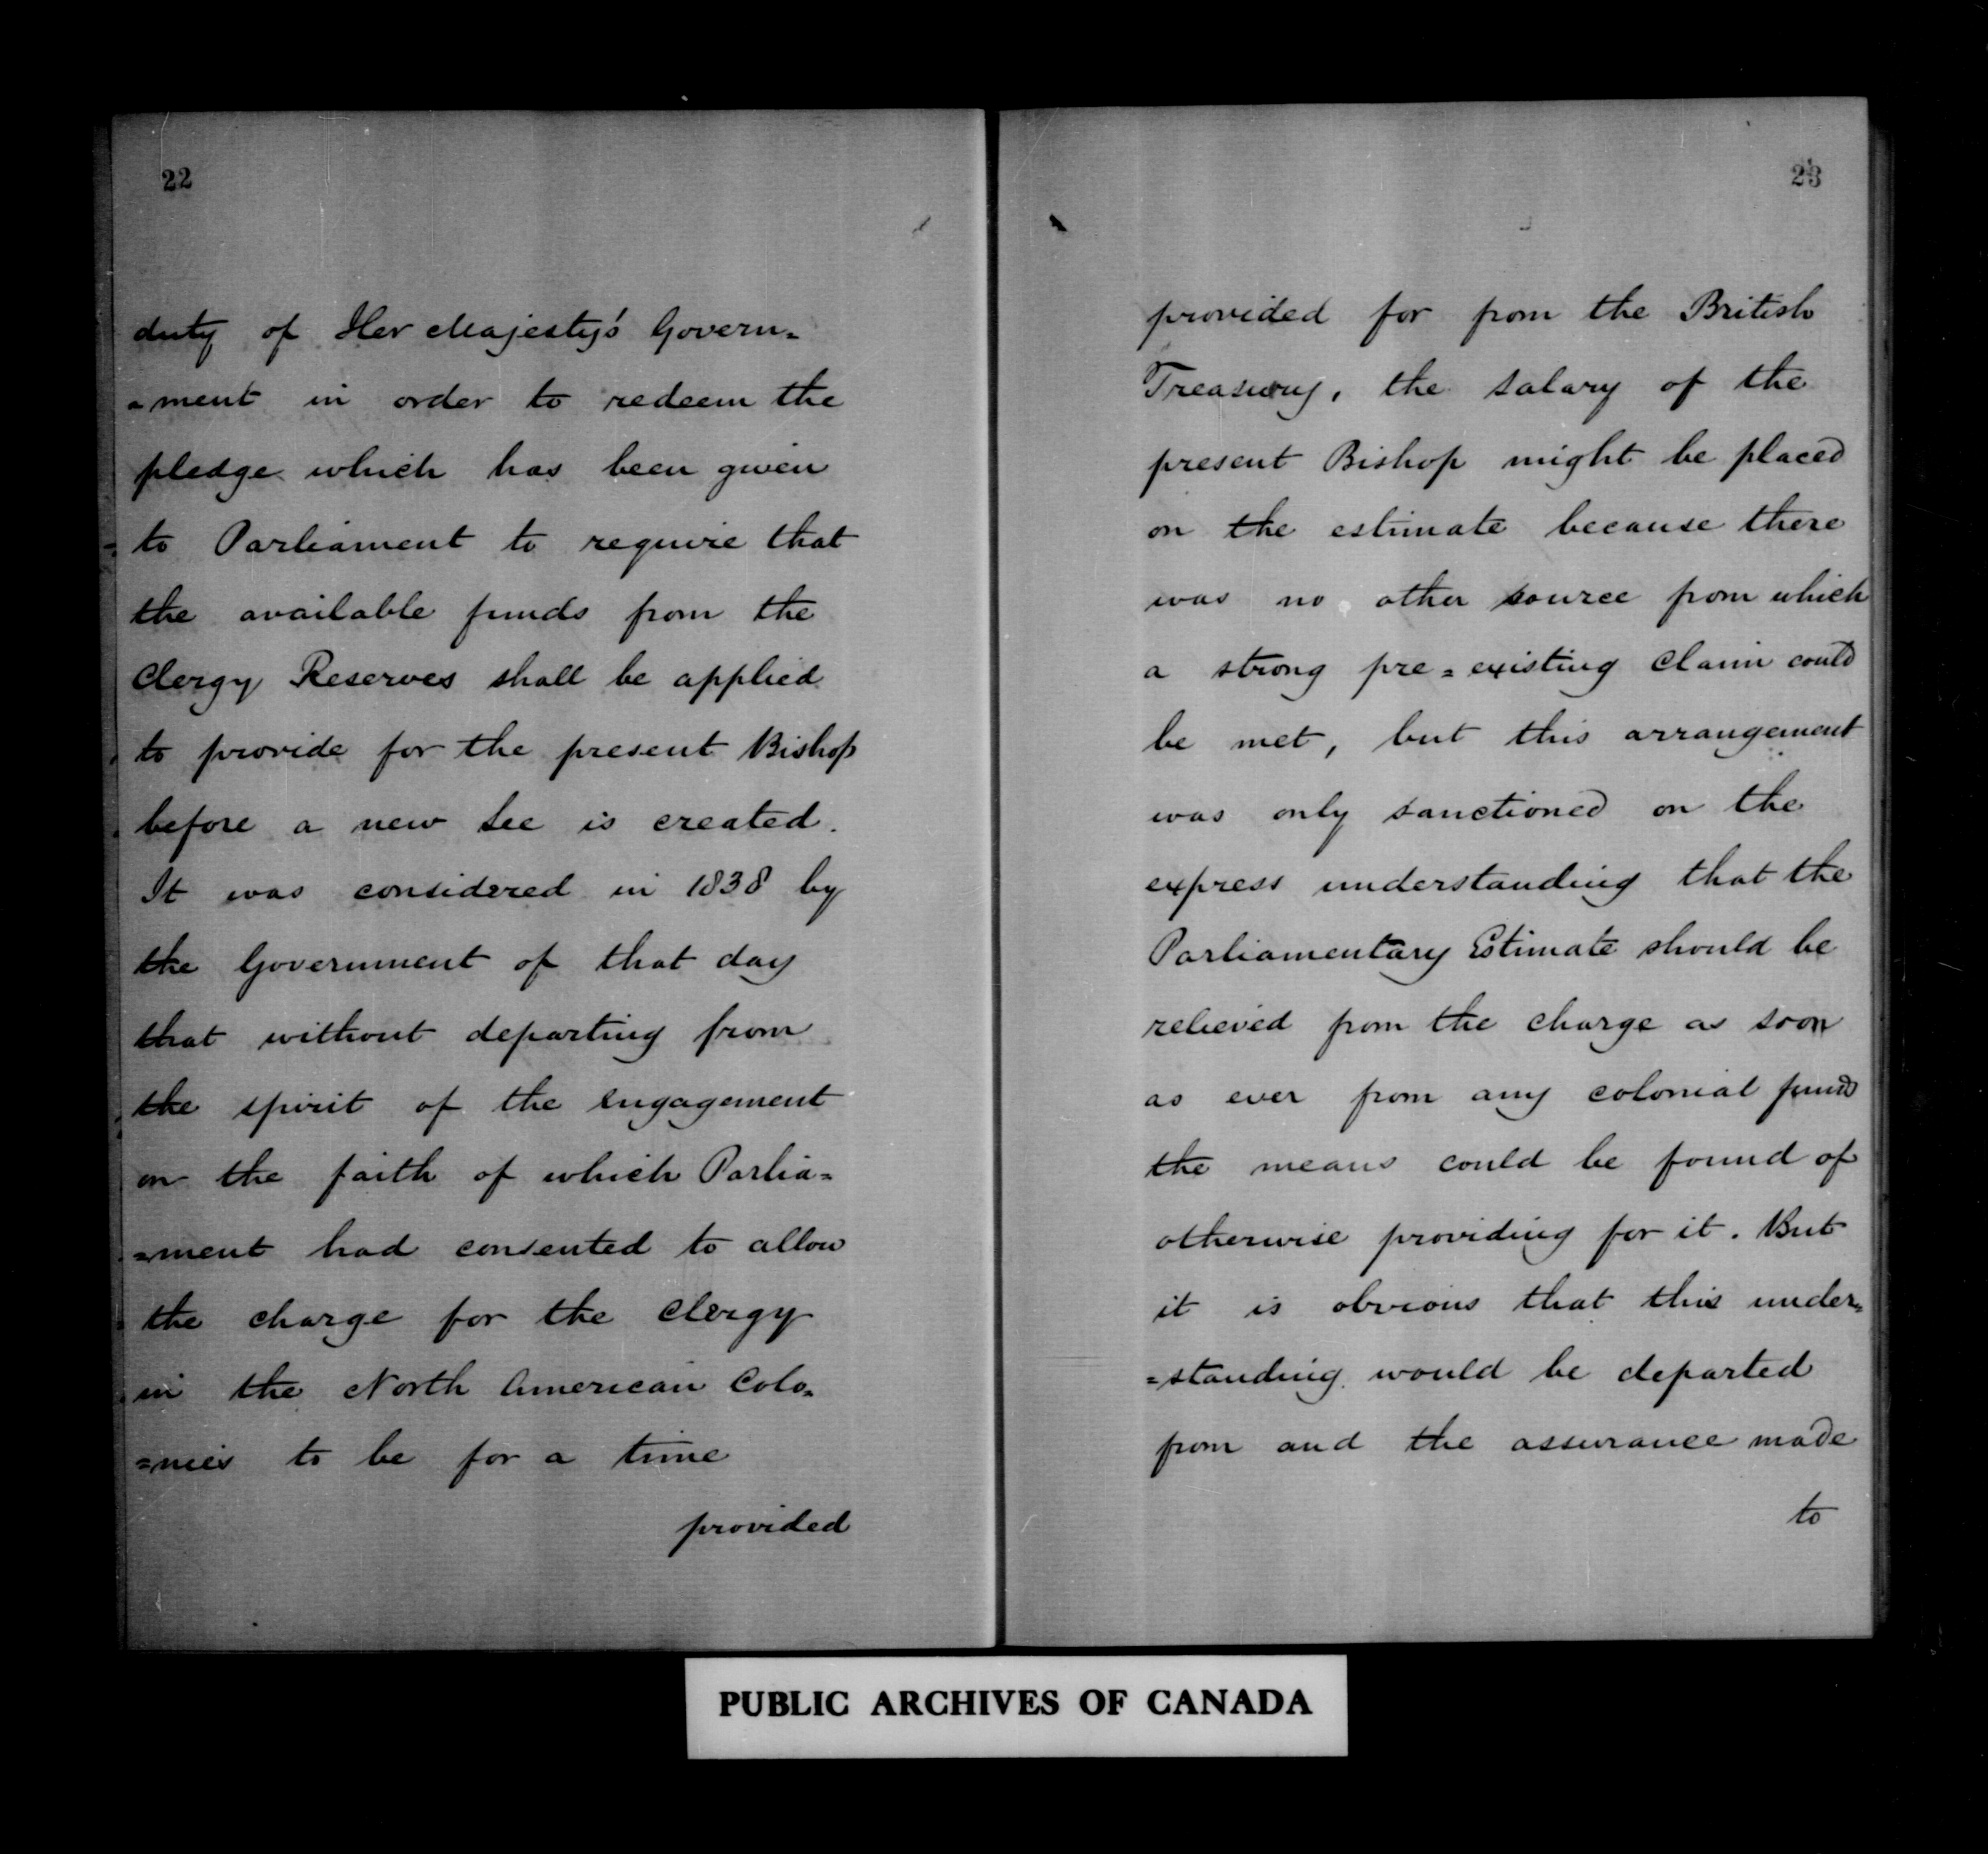 22
duty of Her Majesty's Govern=
=ment in order to redeem the
pledge which has been given
to Parliament to require that
the available funds from the
Clergy Reserves shall be applied
to provide for the present Bishop
before a new See is created.
It was considered in 1838 by
the Government of that day
that without departing from
the spirit of the engagement
on the faith of which Parlia=
=ment had consented to allow
the charge for the Clergy
in the North American Colo=
=nies to be for a time
provided
23
provided for from the British
Treasury, the salary of the
present Bishop might be placed
on the estimate because there
was no other source from which
a strong pre=existing claim could
be met, but this arrangement
was only sanctioned on the
express understanding that the
Parliamentary Estimate should be
relieved from the charge as soon
as ever from any colonial funds
the means could be found of
otherwise providing for it. But
it is obvious that this under=
=standing would be departed
from and the assurance made
to
PUBLIC ARCHIVES OF CANADA